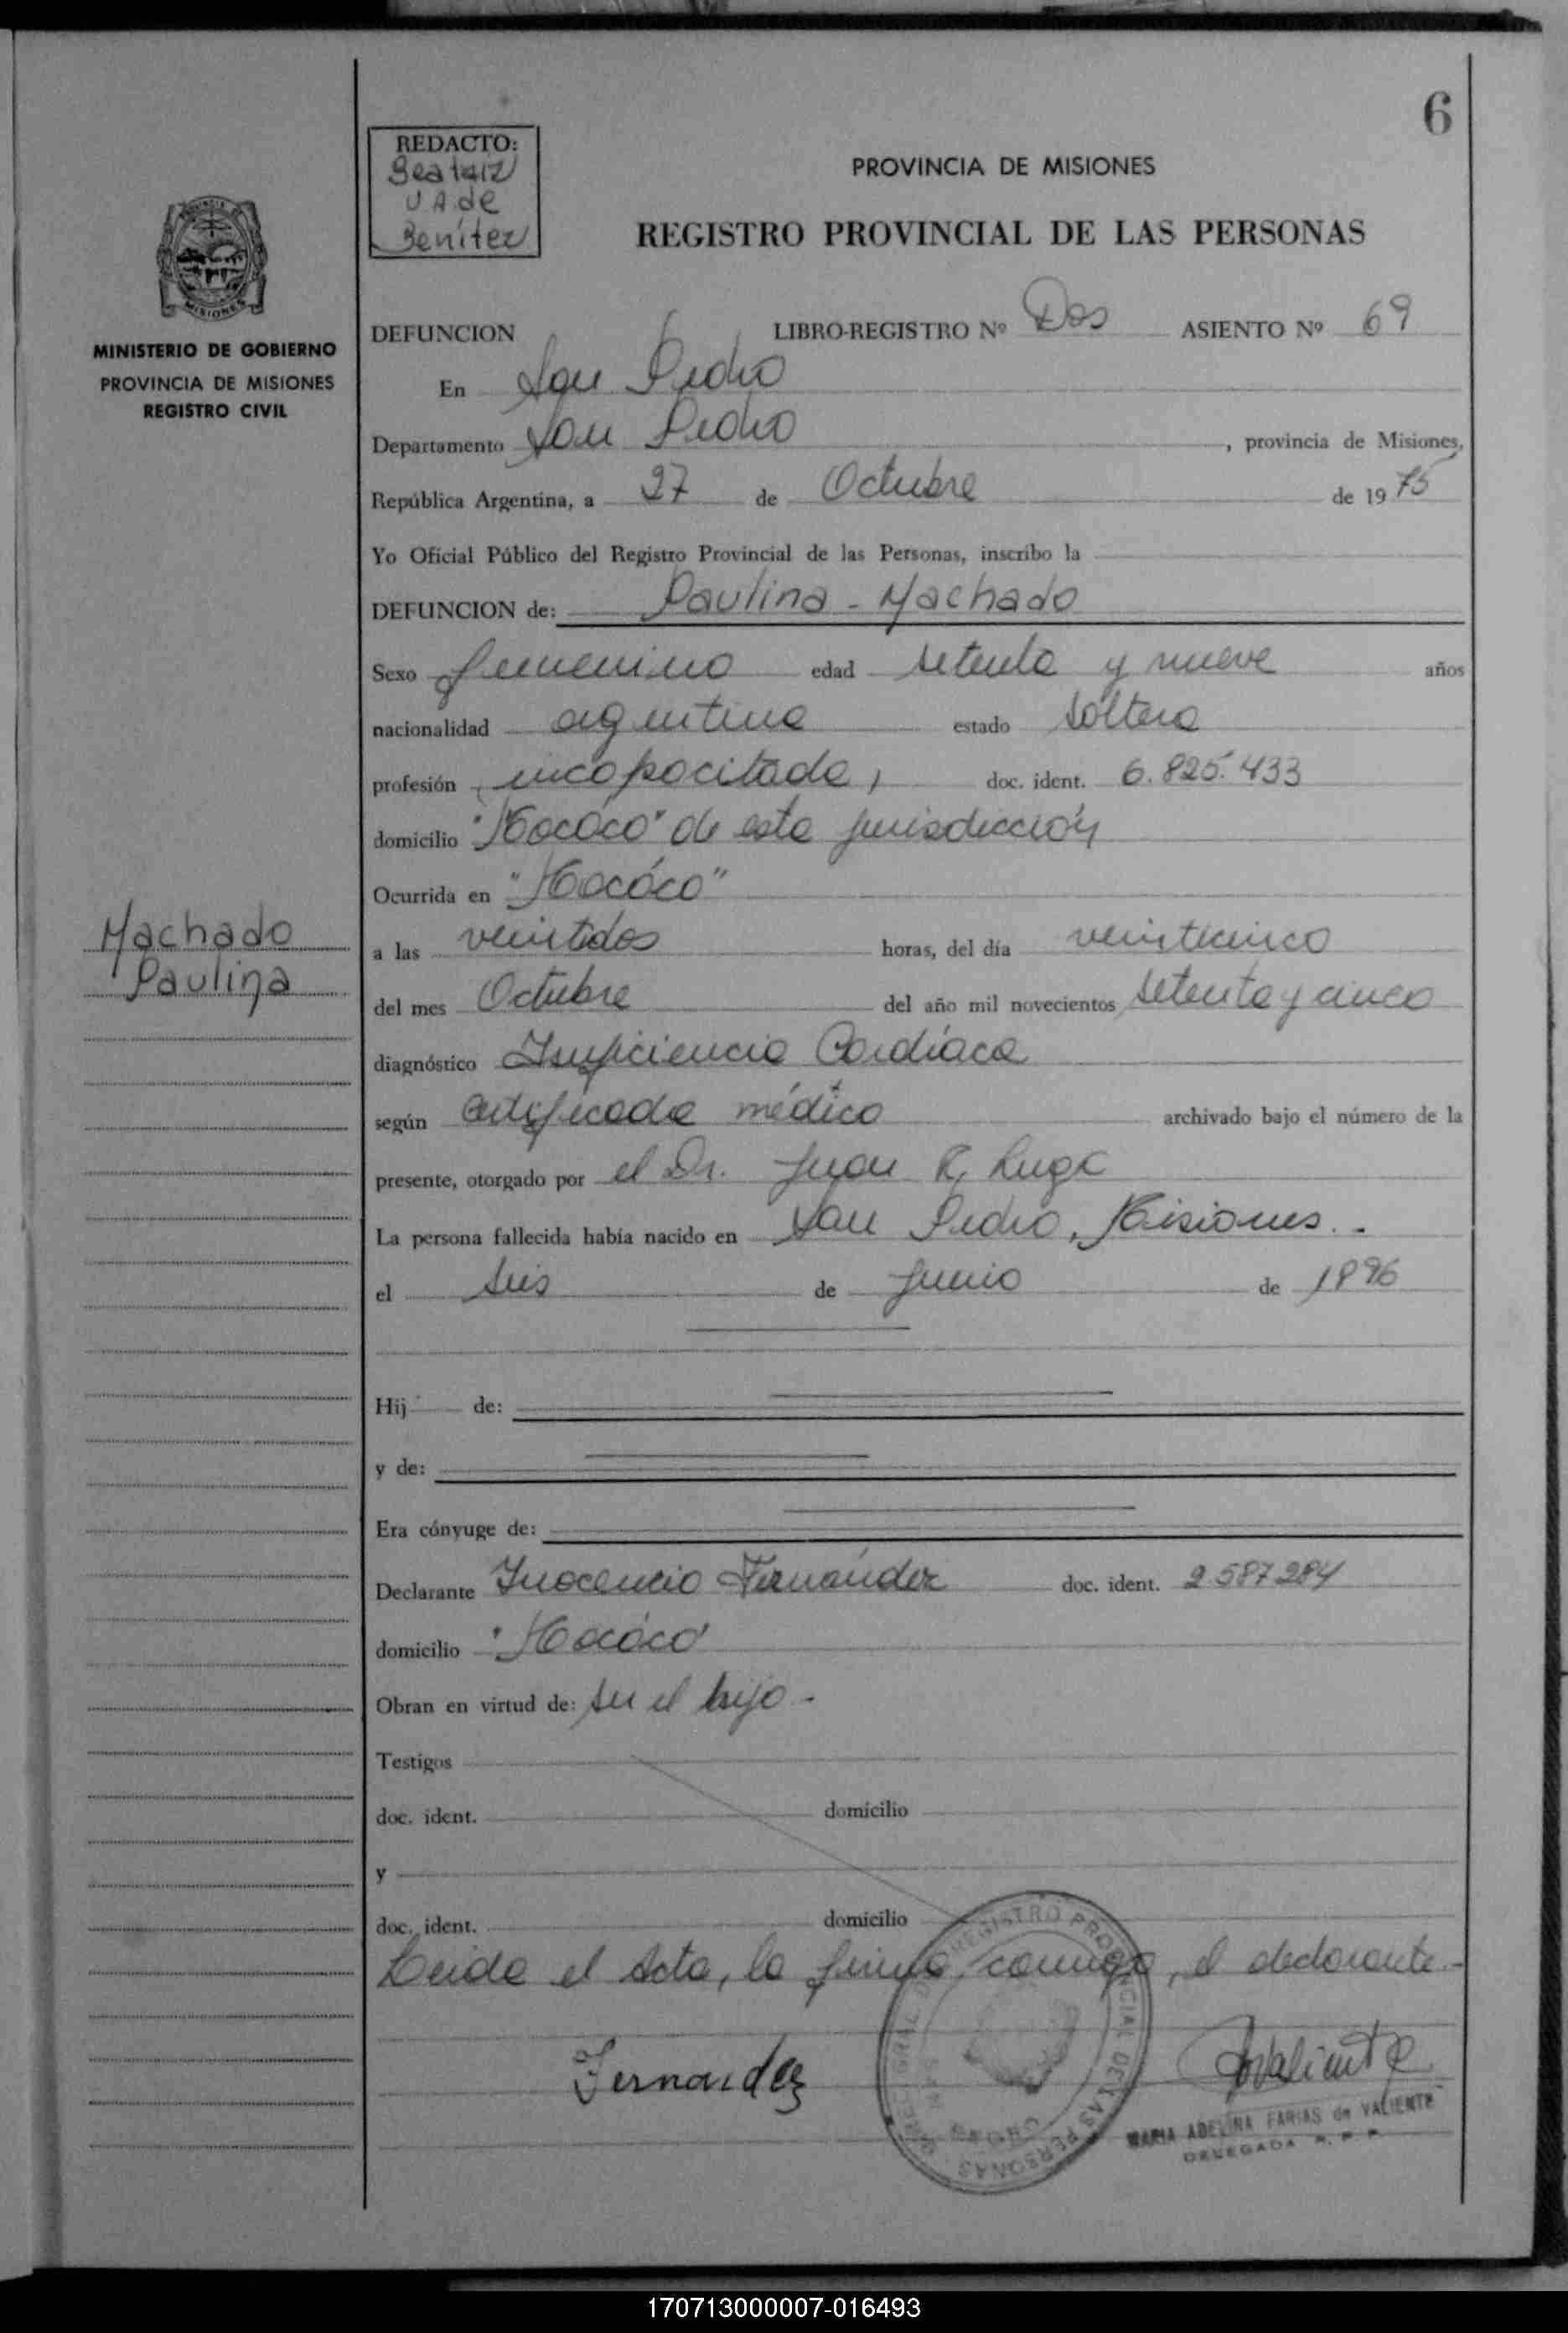 6
REDACTO:
Beatriz
V A. de
Benítez
PROVINCIA DE MISIONES
REGISTRO PROVINCIAL DE LAS PERSONAS
MISIONES
MINISTERIO DE GOBIERNO
PROVINCIA DE MISIONES
REGISTRO CIVIL
DEFUNCION LIBRO-REGISTRO Nº Dos ASIENTO Nº 69
En San Pedro
Departamento San Pedro, provincia de Misiones,
República Argentina, a 27 de Octubre de 1975
Yo Oficial Público del Registro Provincial de las Personas, inscribo la
DEFUNCION de: Paulina - Machado
Sexo femenino edad setenta y nueve años
nacionalidad argentina estado soltera
profesión incapacitada, doc. ident. 6.825.433
domicilio "Mocóco" de esta jurisdicción
Ocurrida en "Mocóco"
Machado
Paulina
a las veintidos horas, del día veinticinco
del mes Octubre del año mil novecientos setenta y cinco
diagnóstico Insuficiencia Cardíaca
según certificado médico archivado bajo el número de la
presente, otorgado por el Dr. Juan R. Lugo
La persona fallecida había nacido en San Pedro, Misiones. -
el seis de Junio de 1896
Hij de:
y de:
Era cónyuge de:
Declarante Inocencio Fernández doc. ident. 2587284
domicilio "Mocóco"
Obran en virtud de: ser el hijo -
Testigos
doc. ident. domicilio
y
doc. ident. domicilio
Leida el Acta, la firma, conmigo, el declarante. -
Fernandez
AValiente
REGISTRO PROVINCIAL DE LAS PERSONAS
MARIA ADELINA FARIAS de VALIENTE
DELEGADA R. P. P.
170713000007-016493